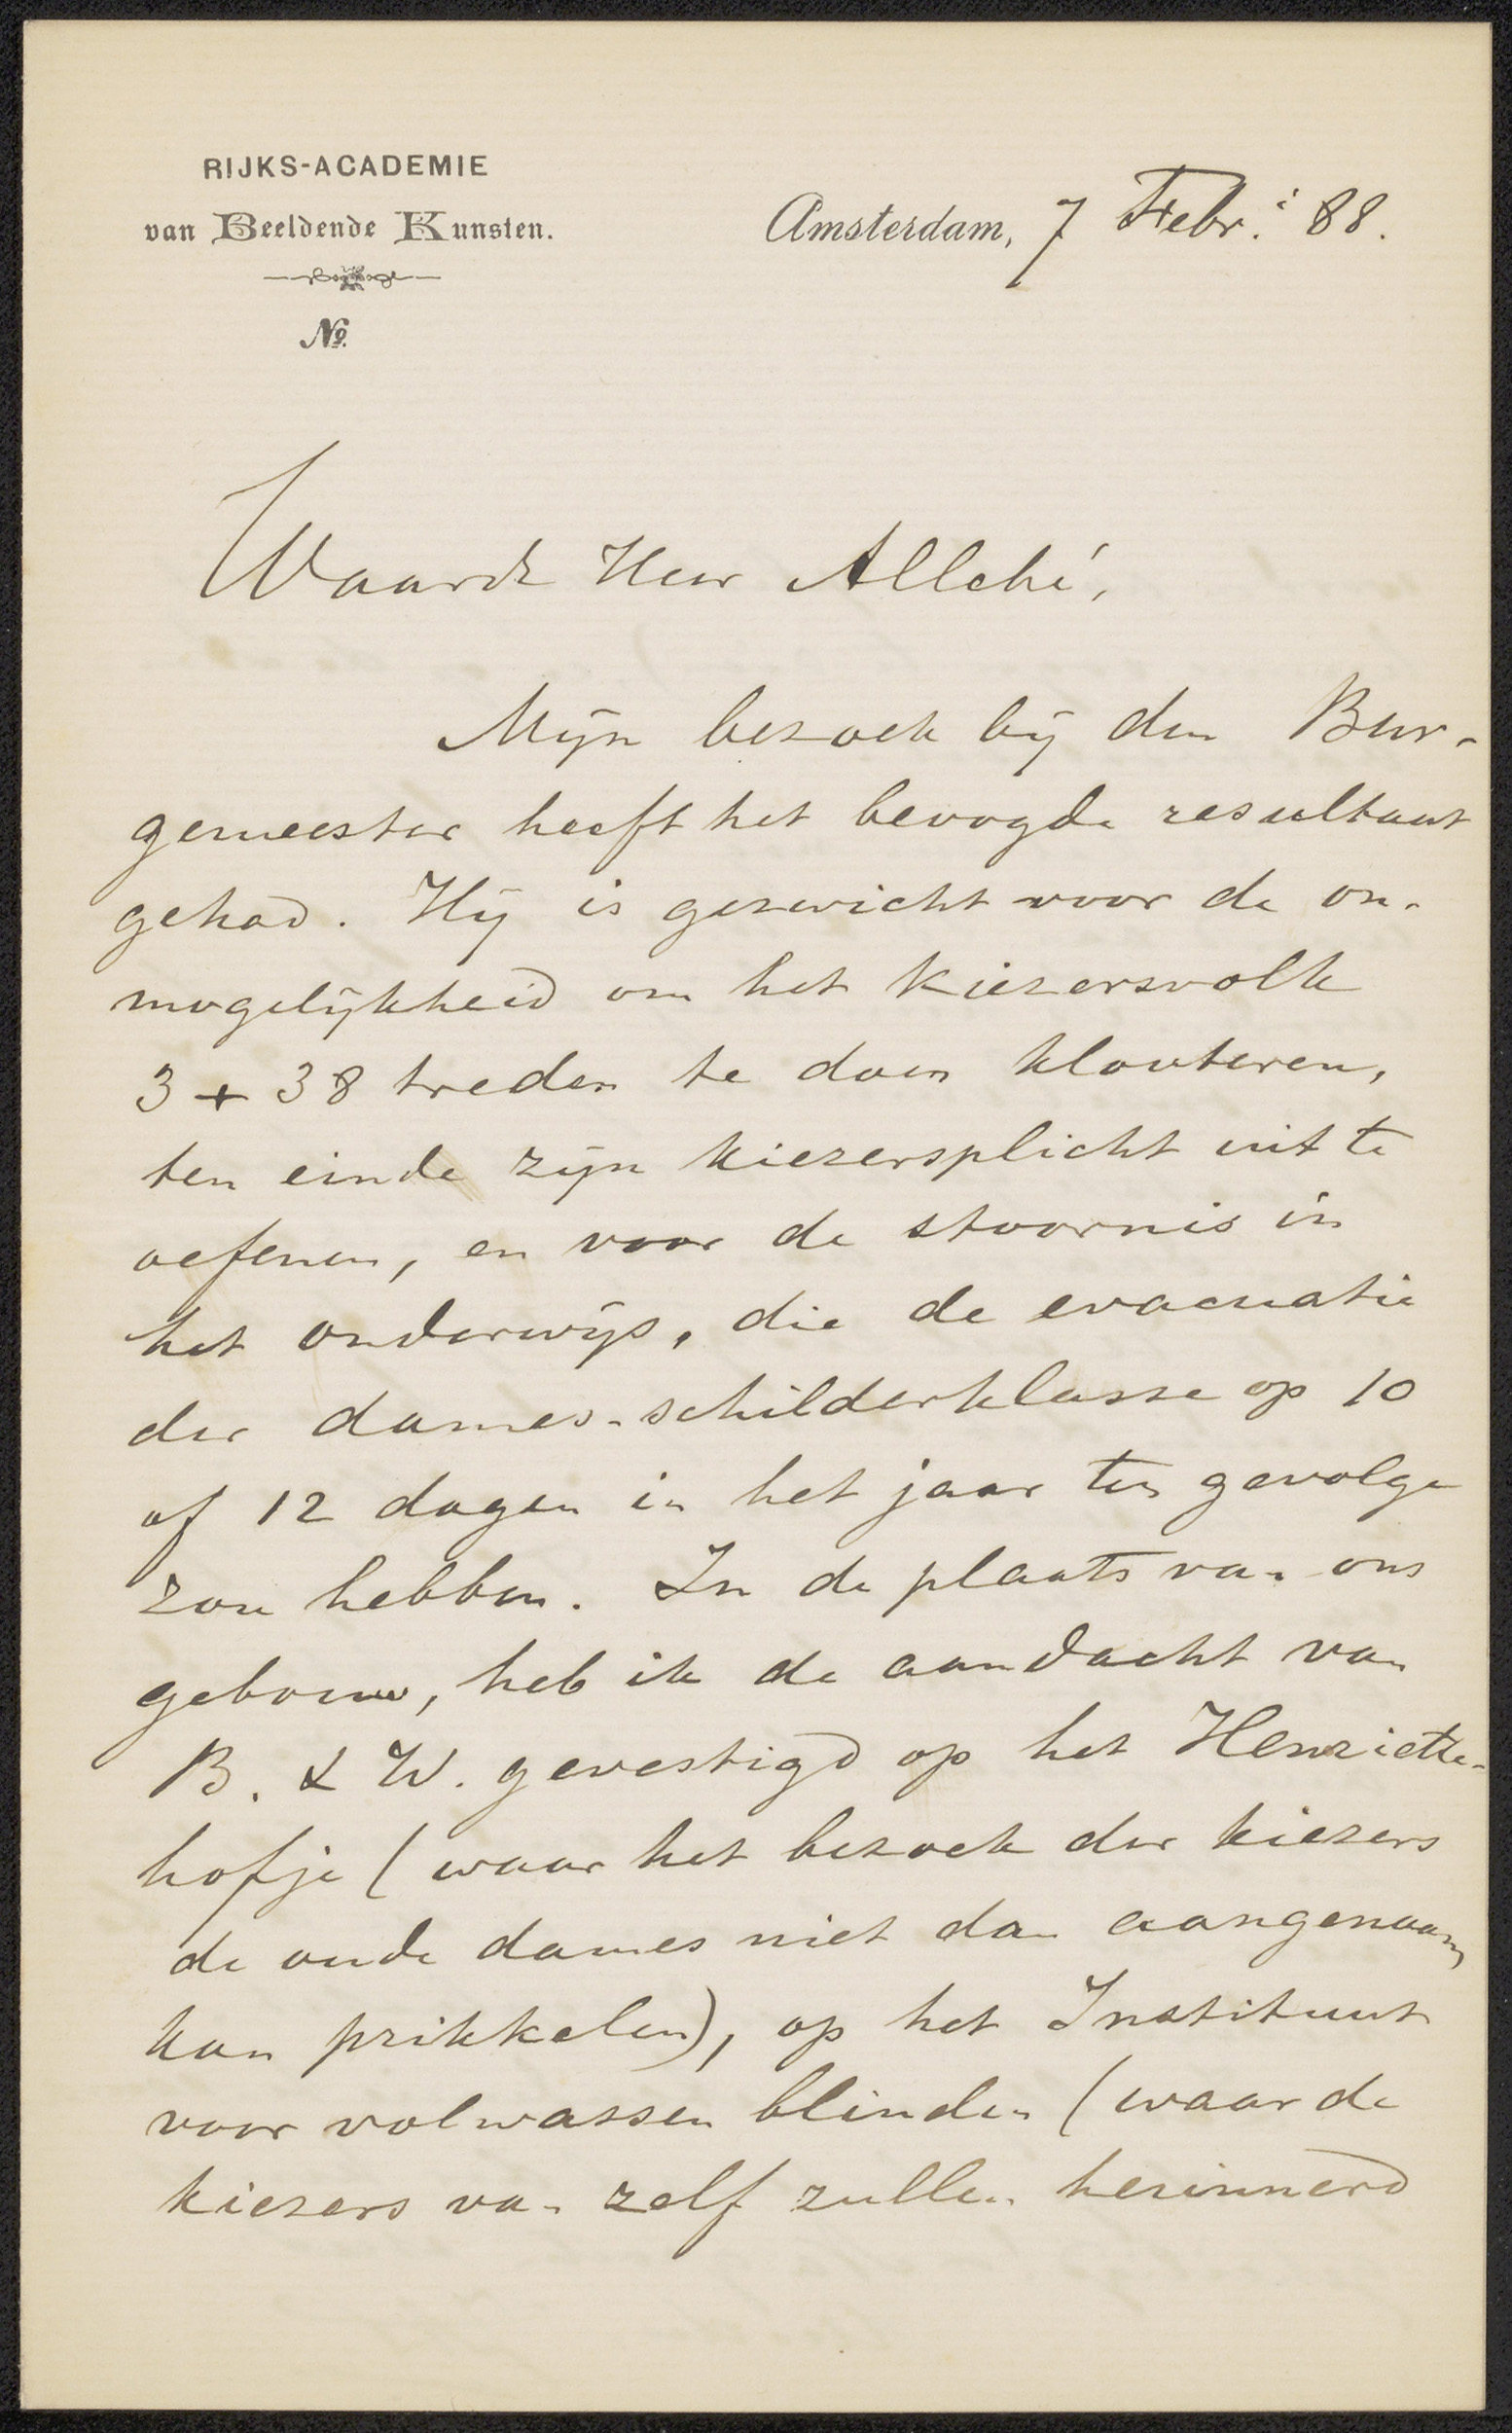 RIJKS-ACADEMIE
van Beeldende Kunsten.
No.
Amsterdam, 7 Febr: 88.
Waarde Heer Allebé,
Mijn bezoek bij den Bur-
gemeester heeft het beoogde resultaat
gehad. Hij is gezwicht voor de on-
mogelijkheid om het kiezersvolk
3 + 38 treden te doen klauteren,
ten einde zijn kiezersplicht uit te
oefenen, en voor de stoornis in
het onderwijs, die de evacuatie
der dames-schilderklasse op 10
of 12 dagen in het jaar ten gevolge
zou hebben. In de plaats van ons
gebouw, heb ik de aandacht van
B. & W. gevestigd op het Henriette-
hofje (waar het bezoek der kiezers
de oude dames niet dan aangenaam
kan prikkelen), op het Instituut
voor volwassen blinden (waar de
kiezers van zelf zullen herinnerd